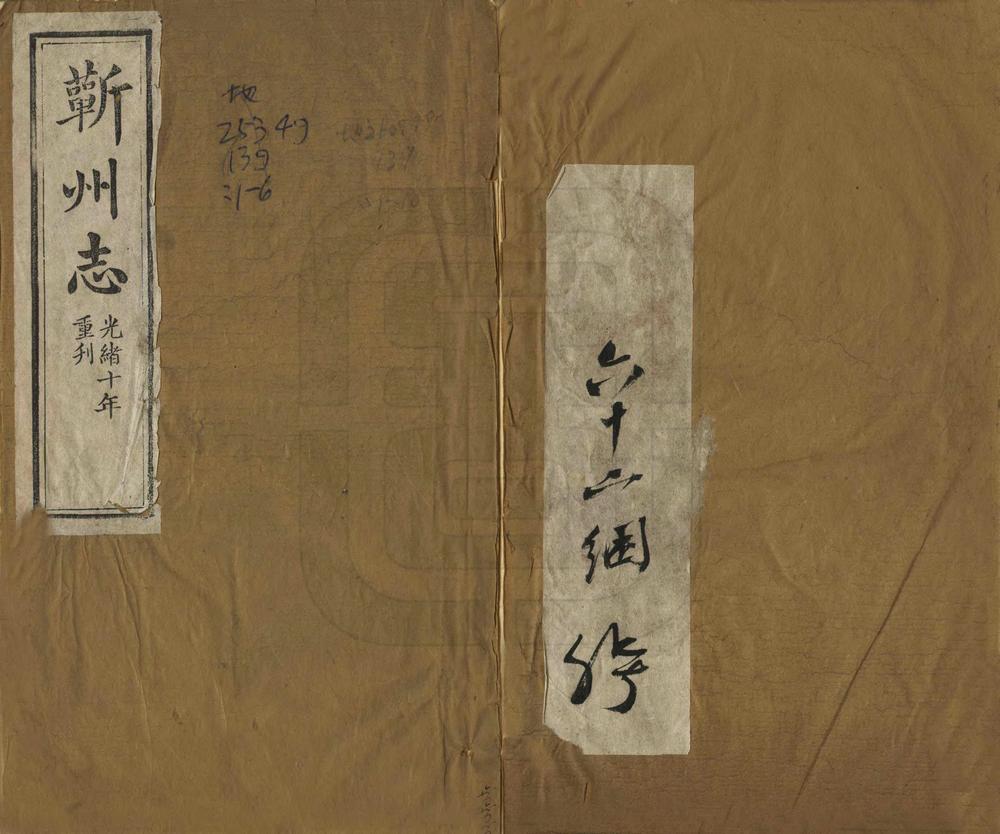 蘄州志
光緒十年
重刋
地
253.49
139
:1-6
六十二綑